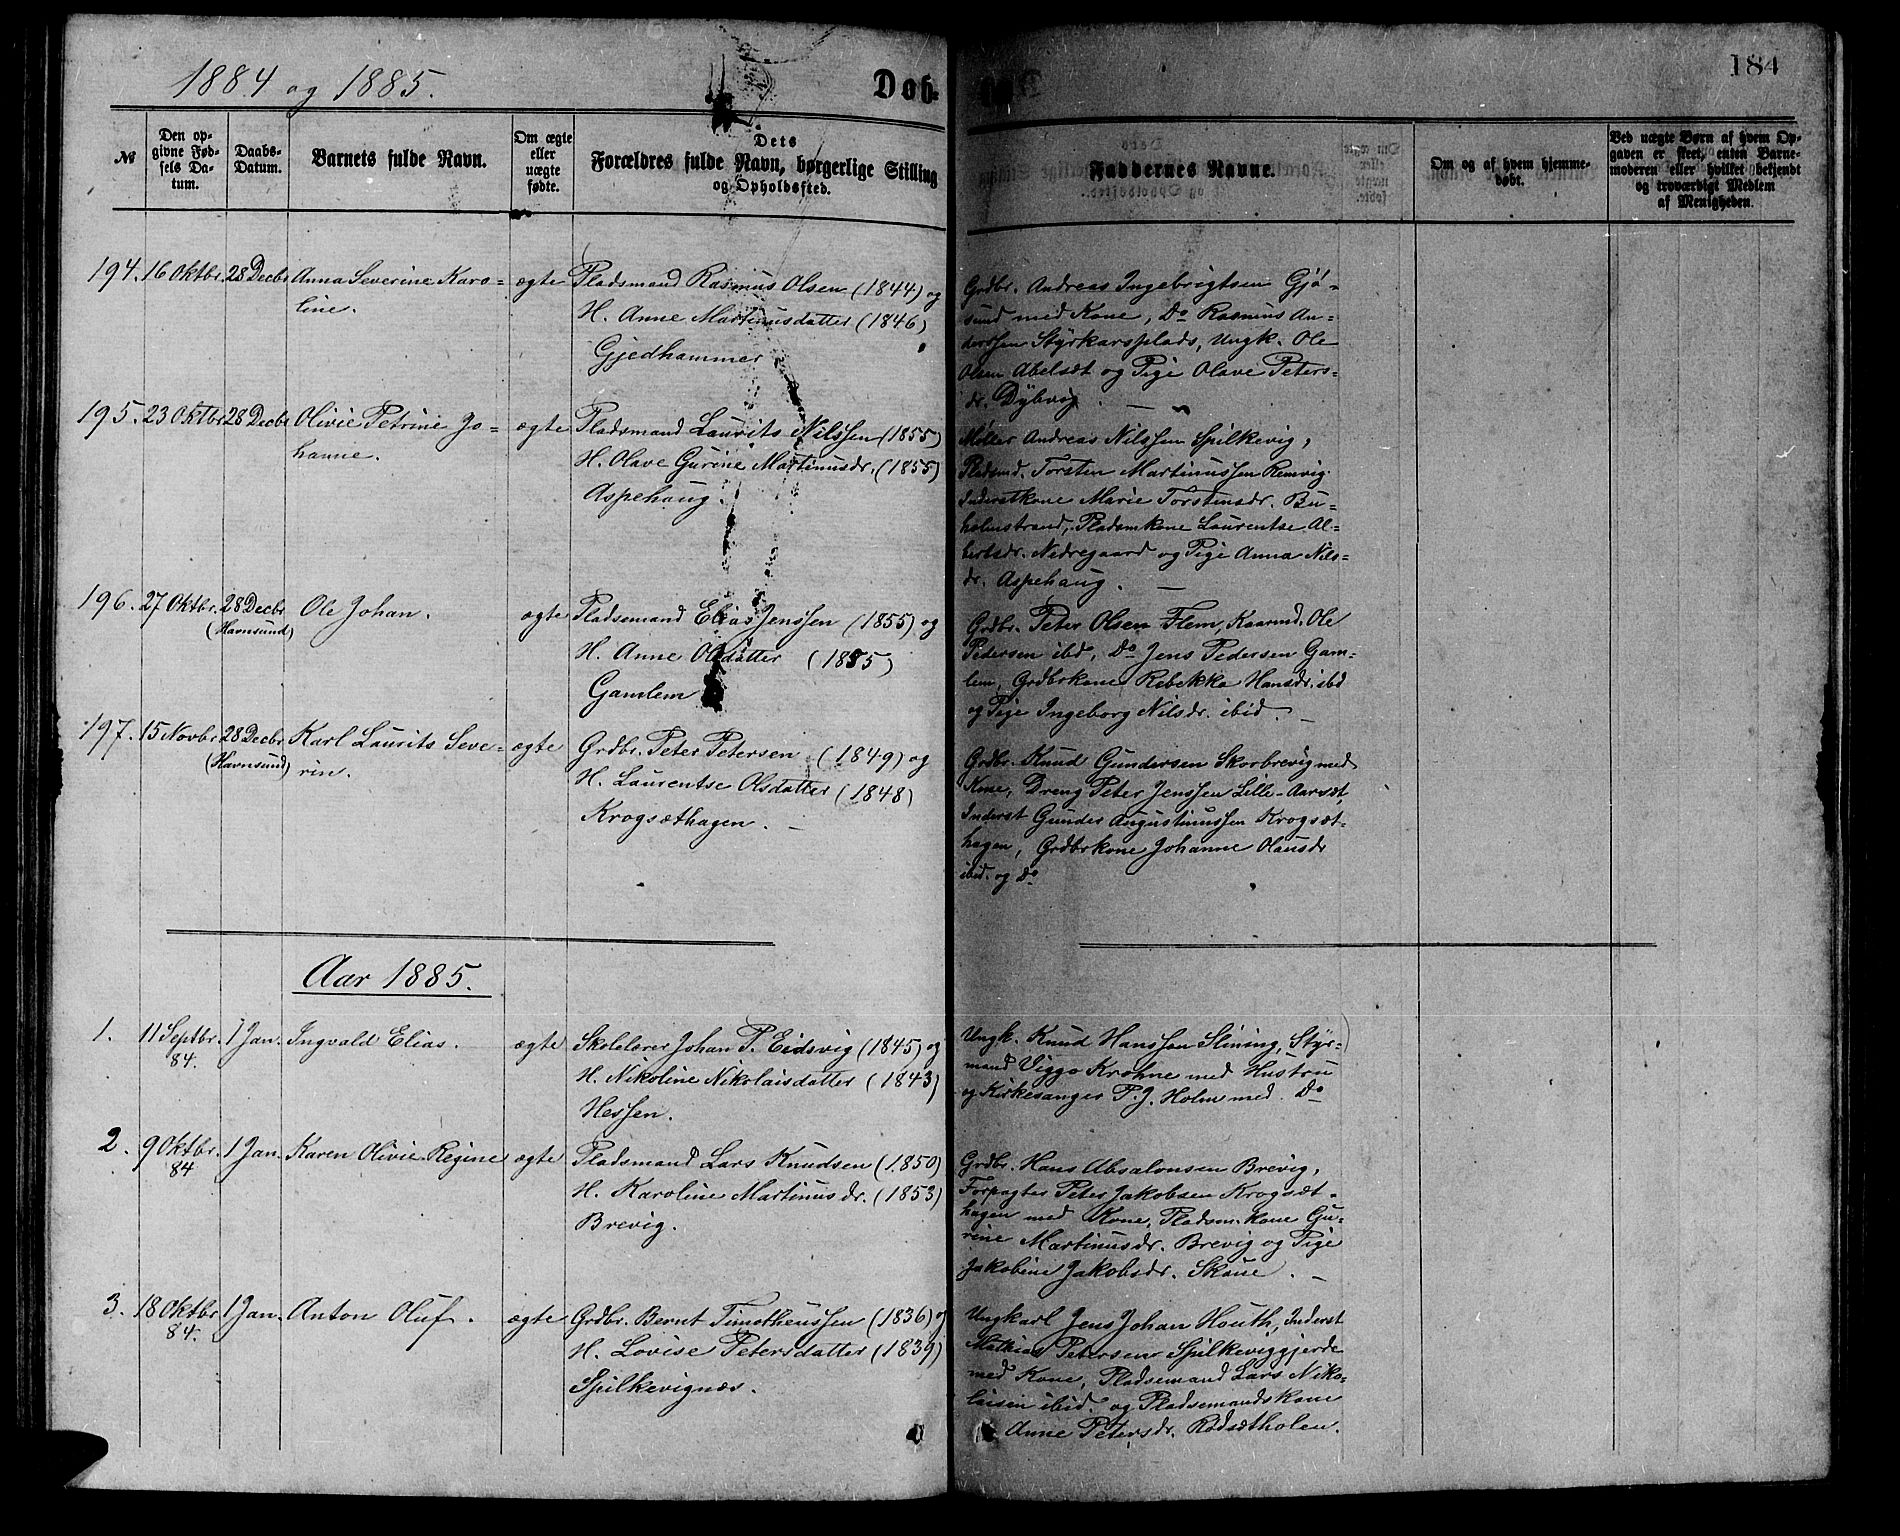 1884 og 1885.
Dob-
184
№
Den op-
givne Fød-
sels Da-
tum.
Daabs-
Datum.
Barnets fulde Navn.
Om ægte
eller
uægte
fødte.
Dets
Forældres fulde Navn, borgerlige Stilling
og Opholdssted.
Faddernes Navne.
Om og af hvem hjemme-
døbt.
Ved uægte Børn af hvem Op-
gaven er skeet, enten Barne-
moderen eller hvilket bekjendt
og troværdigt Medlem
af Menigheden.
194. 16 Oktbr. 28 Decbr Anna Severine Karo- ægte Pladsmand Rasmus Olsen (1844) og
line. H. Anne Martinusdatter (1846)
Gjedhammer
Grdbr. Andreas Ingebrigtsen Gjø-
sund med Kone, Do Rasmus An-
derssen Styrkarsplads, Ungk. Ole
Olsen Abelsæt og Pige Olave Peters-
dr. Dybvig. —
195. 23 Oktbr 28 Decbr Olivie Petrine Jo- ægte Pladsmand Laurits Nilssen (1855)
hanne. H. Olave Gurine Martinusdr. (1855)
Aspehaug.
Møller Andreas Nilssen Spilkevig,
Pladsmd. Torsten Martinussen Remvig.
Inderstkone Marie Torstensdr. Bu-
holmstrand, Pladsmkone Laurentse Al-
bertsdr. Nedregaard og Pige Anna Nils-
dr. Aspehaug. —
196. 27 Oktbr. 28 Decbr Ole Johan. ægte Pladsemand Elias Jenssen (1855) og
(Havnsund) H. Anne Olsdatter (1855)
Gamlem
Grdbr. Peter Olsen Flem, Kaarmd. Ole
Pedersen ibd, Do Jens Pedersen Gam-
lem, Grdbrkone Rebekka Hansdr. ibd
og Pige Ingeborg Nilsdr. ibid. —
197. 15 Novbr 28 Decbr Karl Laurits Seve- ægte Grdbr. Peter Petersen (1849) og
(Havnsund) rin. H. Laurentse Olsdatter (1848)
Krogsæthagen. —
Grdbr. Knud Gundersen Skorbrevig med
Kone, Dreng Peter Jenssen Lille-Aarsæt,
Inderst Gunder Augustinussen Krogsæt-
hagen, Grdbrkone Johanne Olausdr
ibid. og Do
Aar 1885.
1. 11 Septbr. 1 Jan. Ingvald Elias. ægte Skolelærer Johan P. Eidsvig (1845) og
84. H. Nikoline Nikolaisdatter (1843)
Hessen.
Ungk. Knud Hanssen Slining, Styr-
mand Viggo Krohne med Hustru
og Kirkesanger P. J. Holm med Do
2. 9 Oktbr. 1 Jan. Karen Olivie Regine ægte Pladsmand Lars Knudsen (1850)
84 H. Karoline Martinusdr. (1853)
Brevig.
Grdbr. Hans Absalonsen Brevig,
Forpagter Peter Jakobsen Krogsæt-
hagen med Kone, Pladsm.kone Gu-
rine Martinusdr. Brevig og Pige
Jakobine Jakobsdr. Skaue. —
3. 18 Oktbr 1 Jan. Anton Oluf. ægte Grdbr. Bernt Timotheussen (1836) og
84. H. Lovise Petersdatter (1839)
Spilkevignæs.
Ungkarl Jens Johan Houth, Inderst
Mathias Petersen Spilkeviggjerde
med Kone, Pladsemand Lars Niko-
laisen ibid. og Pladsemandskone
Anne Petersdr. Rødsætholen.